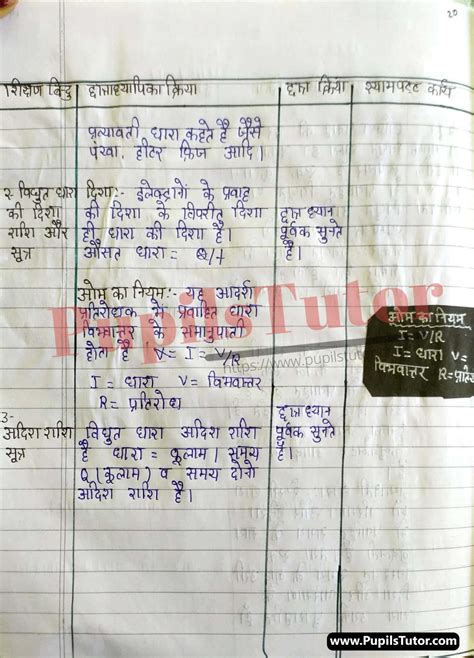 20
शिक्षण बिन्दु छात्राध्यापिका क्रिया छात्र क्रिया श्यामपट्ट कार्य
प्रत्यावर्ती धारा कहते है जैसे
पंखा, हीटर फ्रिज आदि।
2. विद्युत धारा
की दिशा
राशि और
सूत्र
दिशा:- इलेक्ट्रानो के प्रवाह
की दिशा के विपरीत दिशा
ही धारा की दिशा है।
औसत धारा = Q/t
छात्र ध्यान
पूर्वक सुनते
है।
ओम का नियम:- यह आदर्श
प्रतिरोधक के प्रवाहित धारा
विभवान्तर के समानुपाती
होता है। V= I = V/R
I = धारा V= विभवान्तर
R= प्रतिरोध
ओम का नियम
I = V/R
I = धारा V=
विभवान्तर R=प्रतिरो
3-
अदिश राशि
सूत्र
विद्युत धारा अदिश राशि
है धारा = कूलाम। समय
Q (कूलाम) व समय दोनो
अदिश राशि है।
छात्र ध्यान
पूर्वक सुनते
है।
PupilsTutor
https://www.pupilstu
www.PupilsTutor.com